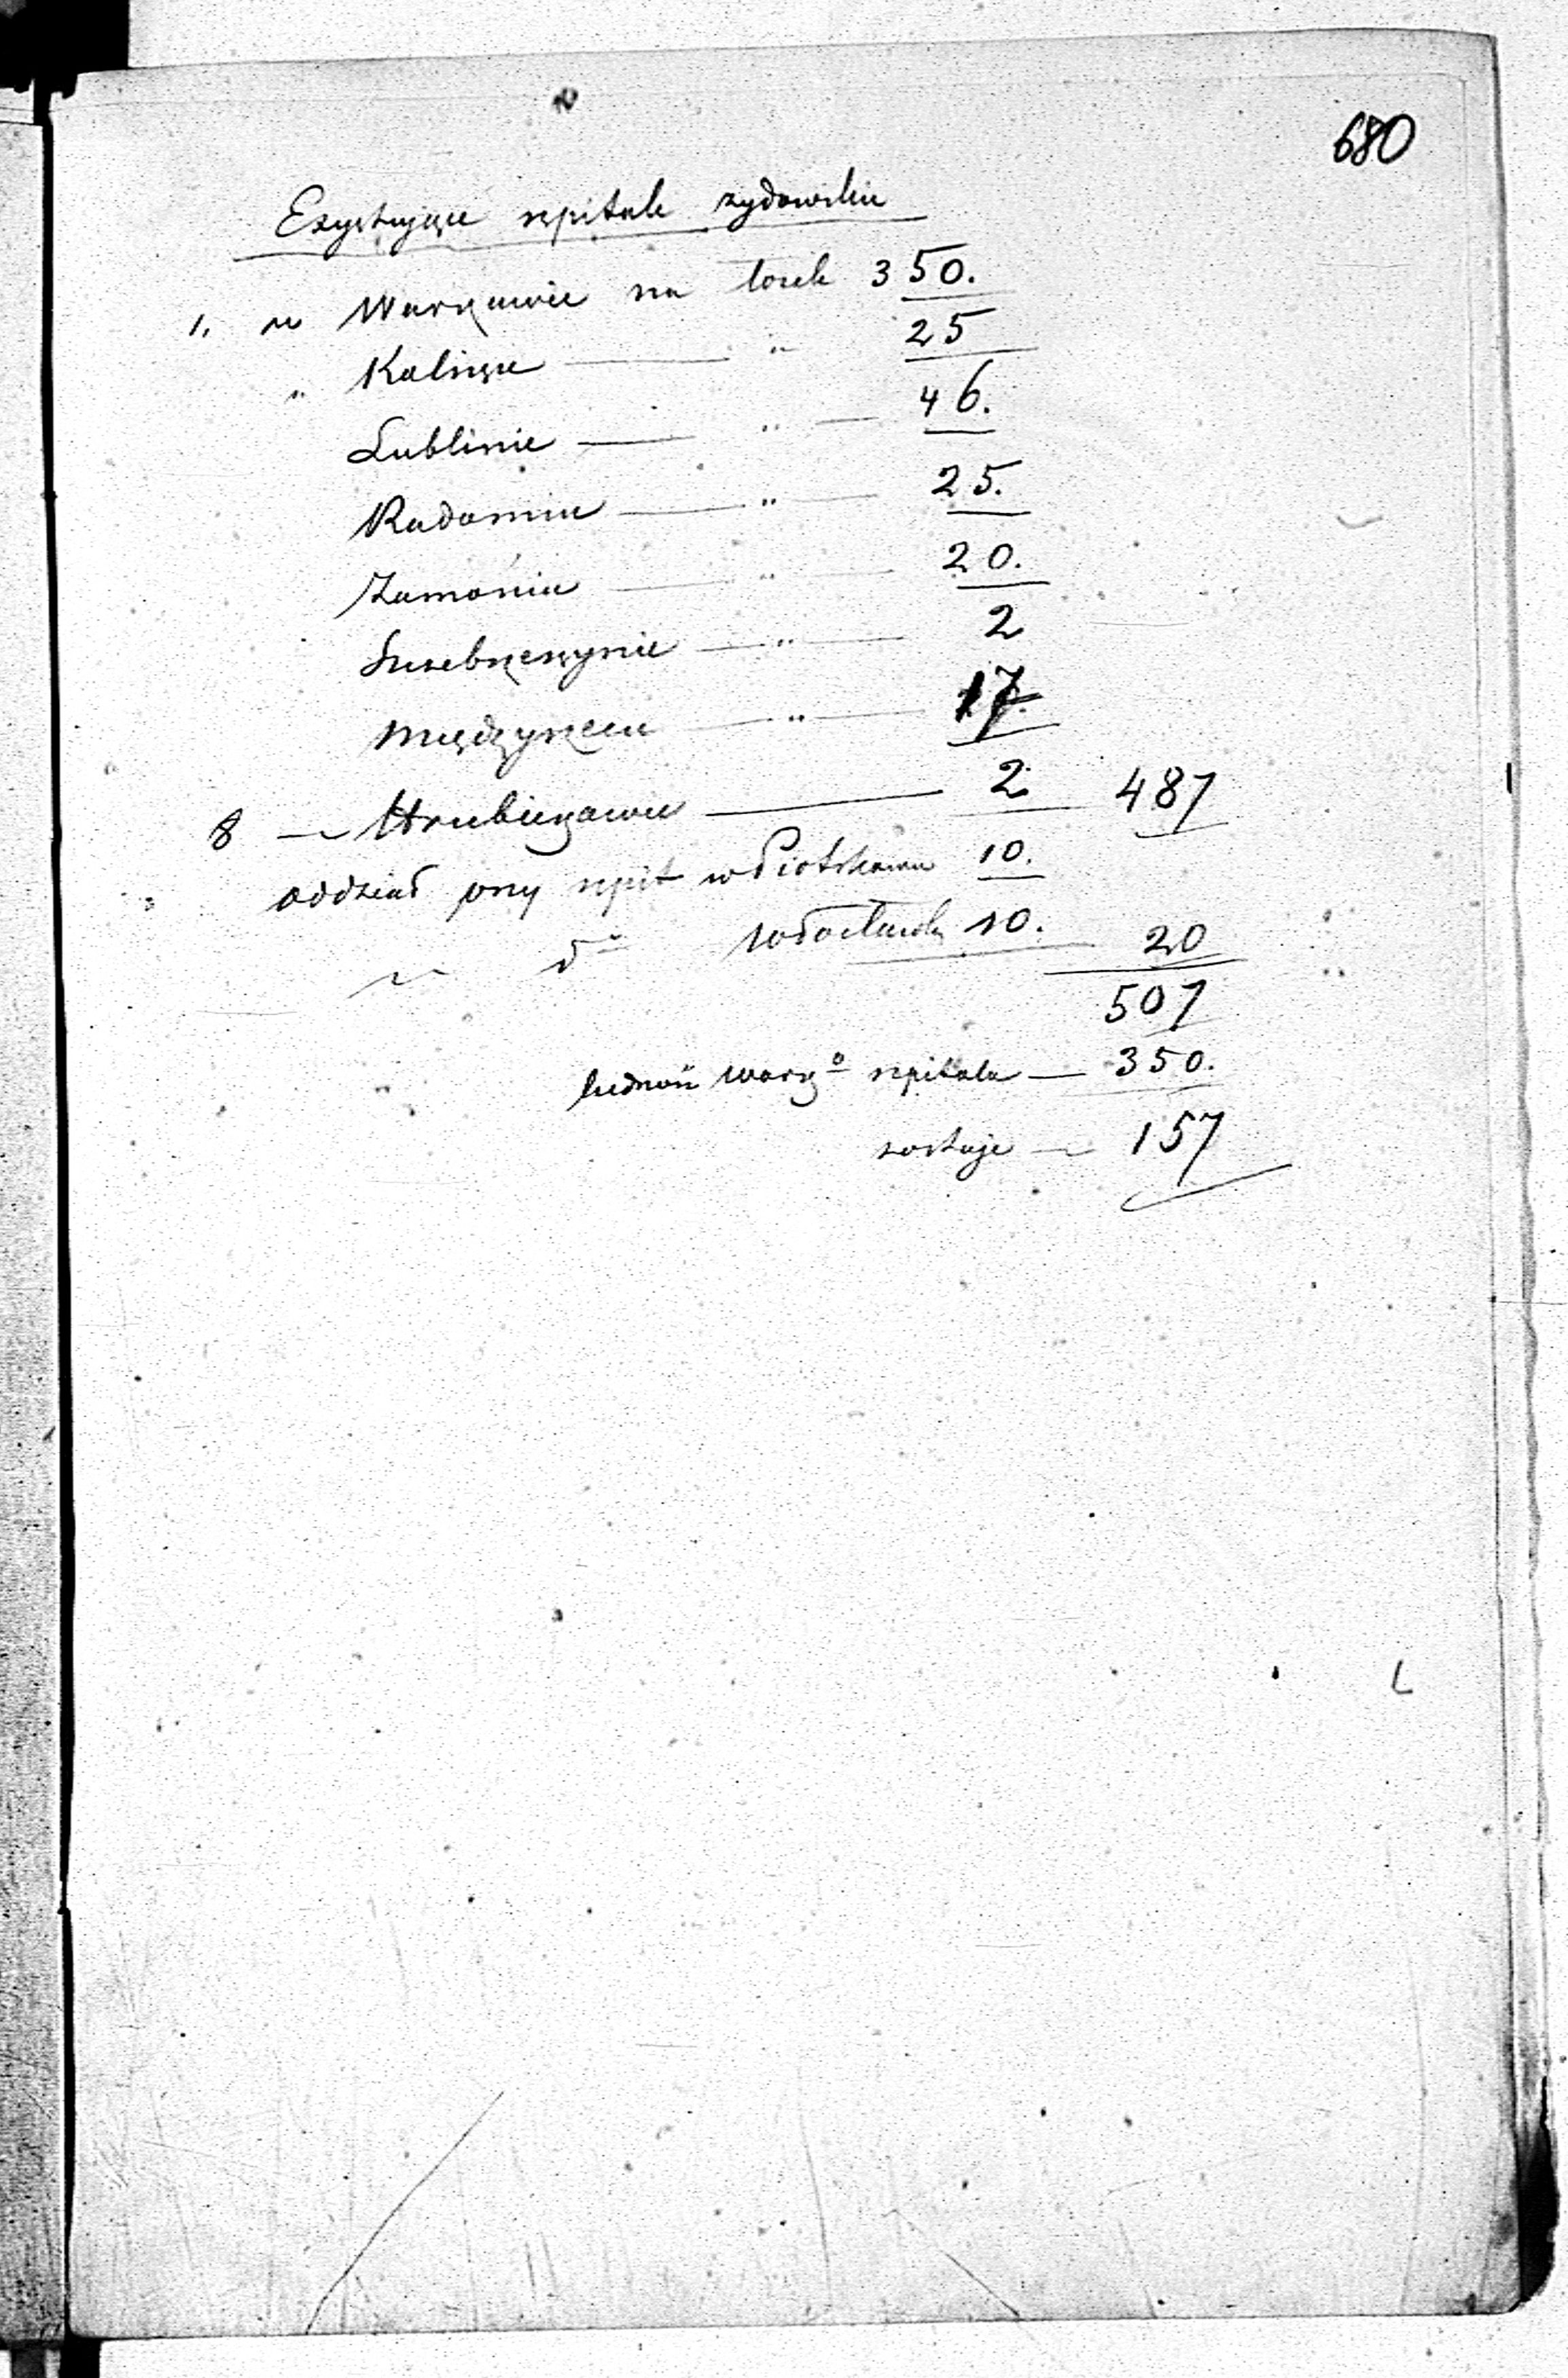 680
Exystujące szpitale żydowskie
1. w Warszawie na łózek 350.
" Kaliszu — " 25
Lublinie — " — 46.
Radomiu — " — 25.
Zamościu — " — 20.
Szczebrzeszynie — " — 2
Międzyrzecu — " — 17.
8 — Hrubieszowie — 2 487
oddział przy szpit w Piotrkowie 10.
" do Włocławku 10. 20
507
warszo szpitala — 350.
zostaje — 157